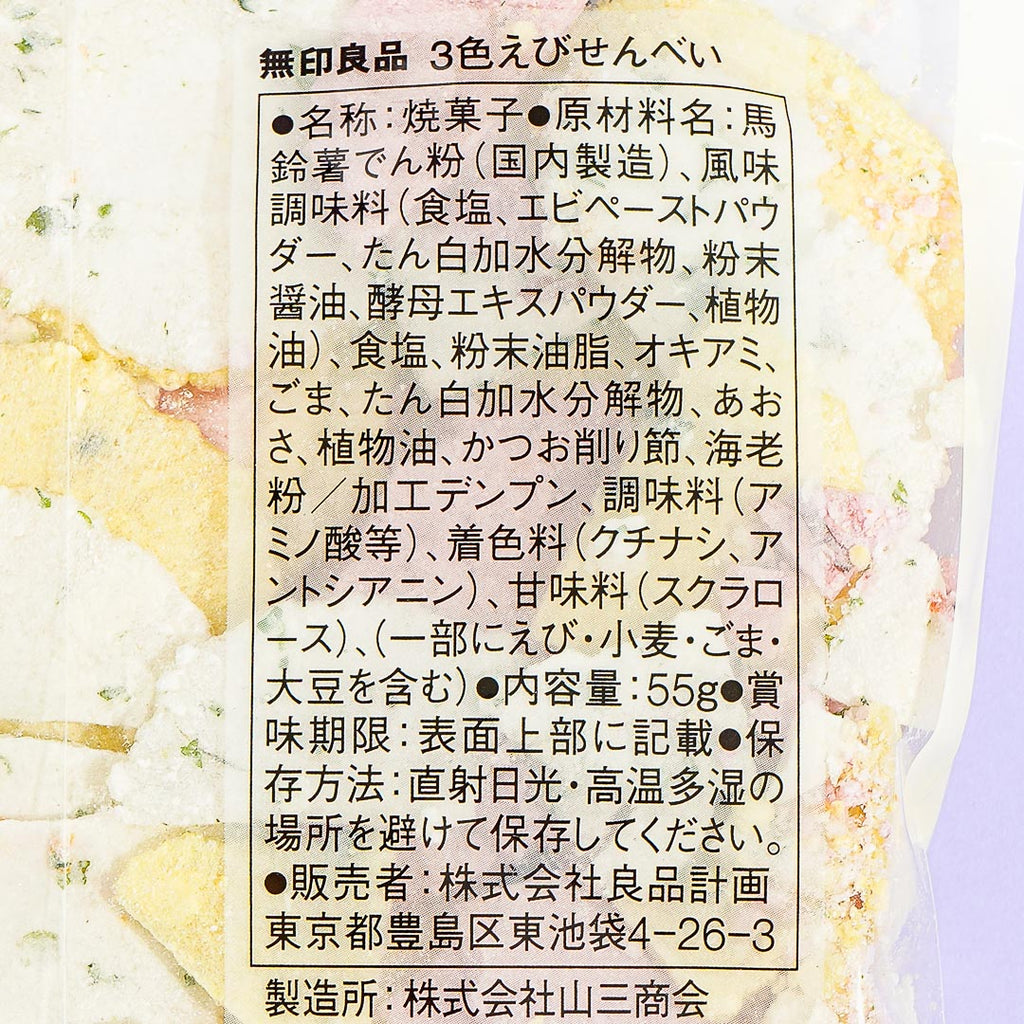 無印良品 3色えびせんべい
●名称：焼菓子●原材料名：馬
鈴薯でん粉（国内製造）、風味
調味料（食塩、エビペーストパウ
ダー、たん白加水分解物、粉末
醤油、酵母エキスパウダー、植物
油）、食塩、粉末油脂、オキアミ、
ごま、たん白加水分解物、あお
さ、植物油、かつお削り節、海老
粉／加工デンプン、調味料（ア
ミノ酸等）、着色料（クチナシ、ア
ントシアニン）、甘味料（スクラロ
ース）、（一部にえび・小麦・ごま・
大豆を含む）●内容量：55g●賞
味期限：表面上部に記載●保
存方法：直射日光・高温多湿の
場所を避けて保存してください。
●販売者：株式会社良品計画
東京都豊島区東池袋4−26−3
製造所：株式会社山三商会